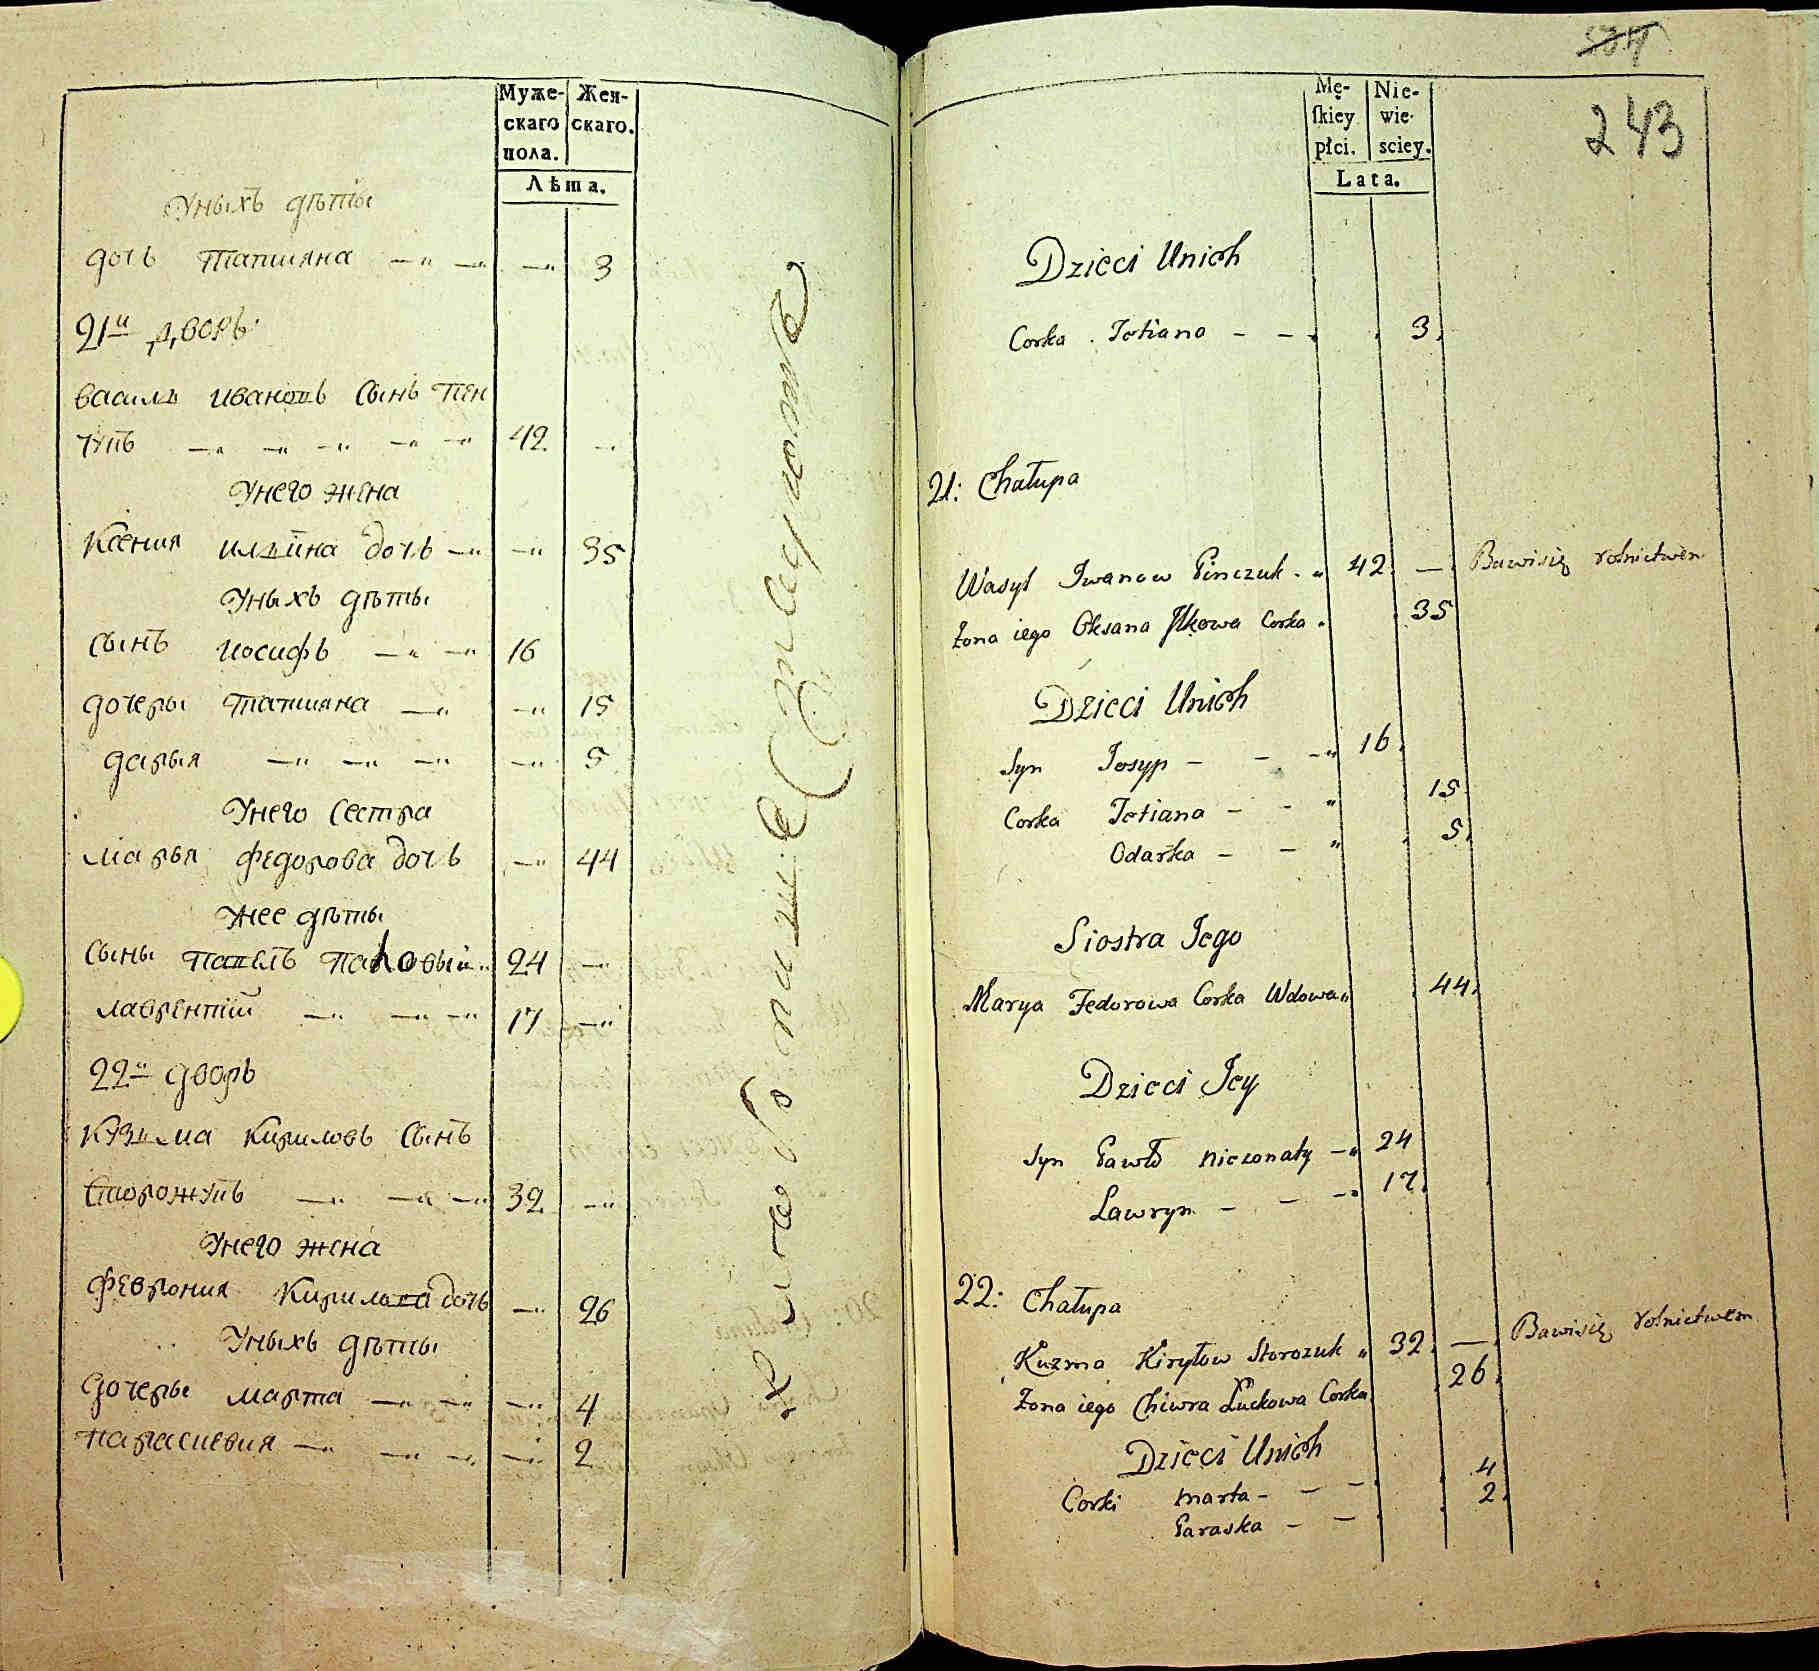 Муже-
скаго
пола.
Жен-
скаго.
Лѣта.
Унихъ дѣти
дочь татияна 3
21й дворъ
василь ивановъ сынъ пен
чукъ 42
Унего жена
Ксения ильина дочь 35
Унихъ дѣти
сынъ иосифъ 16
дочери татияна 15
дарья 5
Унего сестра
марья федорова дочь 44
Унее дѣти
сыны павелъ 24
лаврентий 17
22й дворъ
Кузьма кириловъ сынъ
сторожукъ 32
Унего жена
феврония дочь 26
Унихъ дѣти
дочери марта 4
параскевия 2
Mę-
skiey
płci.
Nie-
wie-
sciey.
Lata.
243
Dzieci Unich
Corka Tetiana 3.
21: Chałupa
Wasyl Iwanow Pinczuk 42. Bawisię rolnictwem
Żona iego Oksana Ilkowa Corka 35
Dzieci Unich
Syn Iosyp 16.
Corka Tetiana 15
Odarka 5.
Siostra Iego
Marya Fedorowa Corka Wdowa 44.
Dzieci Iey
Syn Pawło niezonaty 24
Ławryn 17.
22: Chałupa
Kuzma Kiryłow Storozuk 32. Bawisię rolnictwem
Żona iego Chiwra Łuckowa Corka 26.
Dzieci Unich
Corki marta 4
Paraska 2.